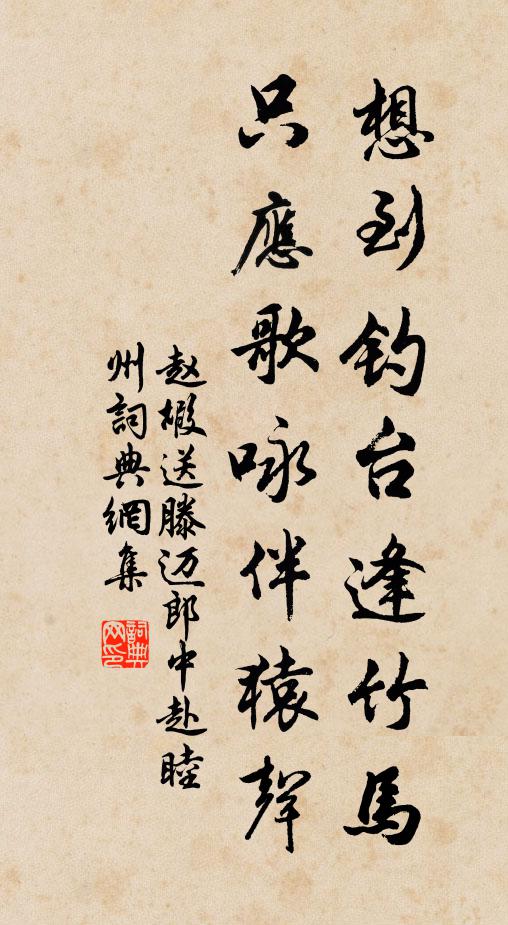 想到钓台逢竹馬
只應歌咏伴猿聲
赵嘏送滕迈郎中赴睦
州詞典網集
詞典网印